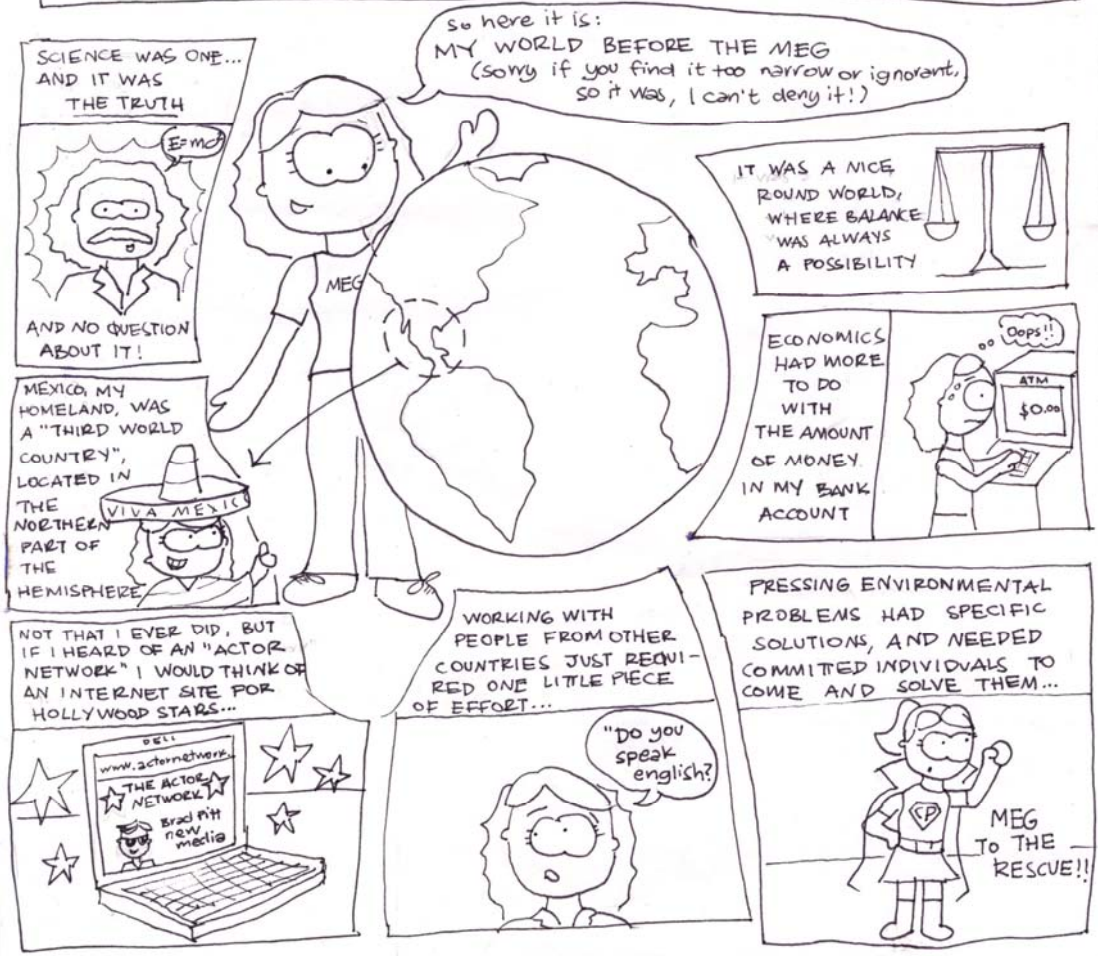 so here it is:
MY WORLD BEFORE THE MEG
(sorry if you find it too narrow or ignorant,
so it was, I can't deny it!)
SCIENCE WAS ONE...
AND IT WAS
THE TRUTH
E=mc²
AND NO QUESTION
ABOUT IT!
MEG
IT WAS A NICE
ROUND WORLD,
WHERE BALANCE
WAS ALWAYS
A POSSIBILITY
MEXICO, MY
HOMELAND, WAS
A "THIRD WORLD
COUNTRY",
LOCATED IN
THE
NORTHERN
PART OF
THE
HEMISPHERE
VIVA MEXIC
ECONOMICS
HAD MORE
TO DO
WITH
THE AMOUNT
OF MONEY
IN MY BANK
ACCOUNT
Oops!!
ATM
$0.00
NOT THAT I EVER DID, BUT
IF I HEARD OF AN "ACTOR
NETWORK" I WOULD THINK OF
AN INTERNET SITE FOR
HOLLYWOOD STARS...
DELL
www.actornetwork.
THE ACTOR
NETWORK
Brad Pitt
new
media
WORKING WITH
PEOPLE FROM OTHER
COUNTRIES JUST REQUI-
RED ONE LITTLE PIECE
OF EFFORT...
"Do you
speak
english?
PRESSING ENVIRONMENTAL
PROBLEMS HAD SPECIFIC
SOLUTIONS, AND NEEDED
COMMITTED INDIVIDUALS TO
COME AND SOLVE THEM...
CP
MEG
TO THE
RESCUE!!